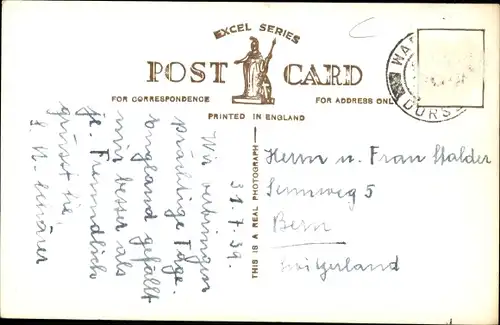 EXCEL SERIES
POST CARD
FOR CORRESPONDENCE
FOR ADDRESS ONLY
PRINTED IN ENGLAND
THIS IS A REAL PHOTOGRAPH
WAR
DORS
31.7.39.
Wir verbringen
prächtige Tage.
England gefällt
mir besser als
je. Freundlich
grüsst Sie,
Herrn u. Frau Stalder
Sennweg 5
Bern
Switzerland